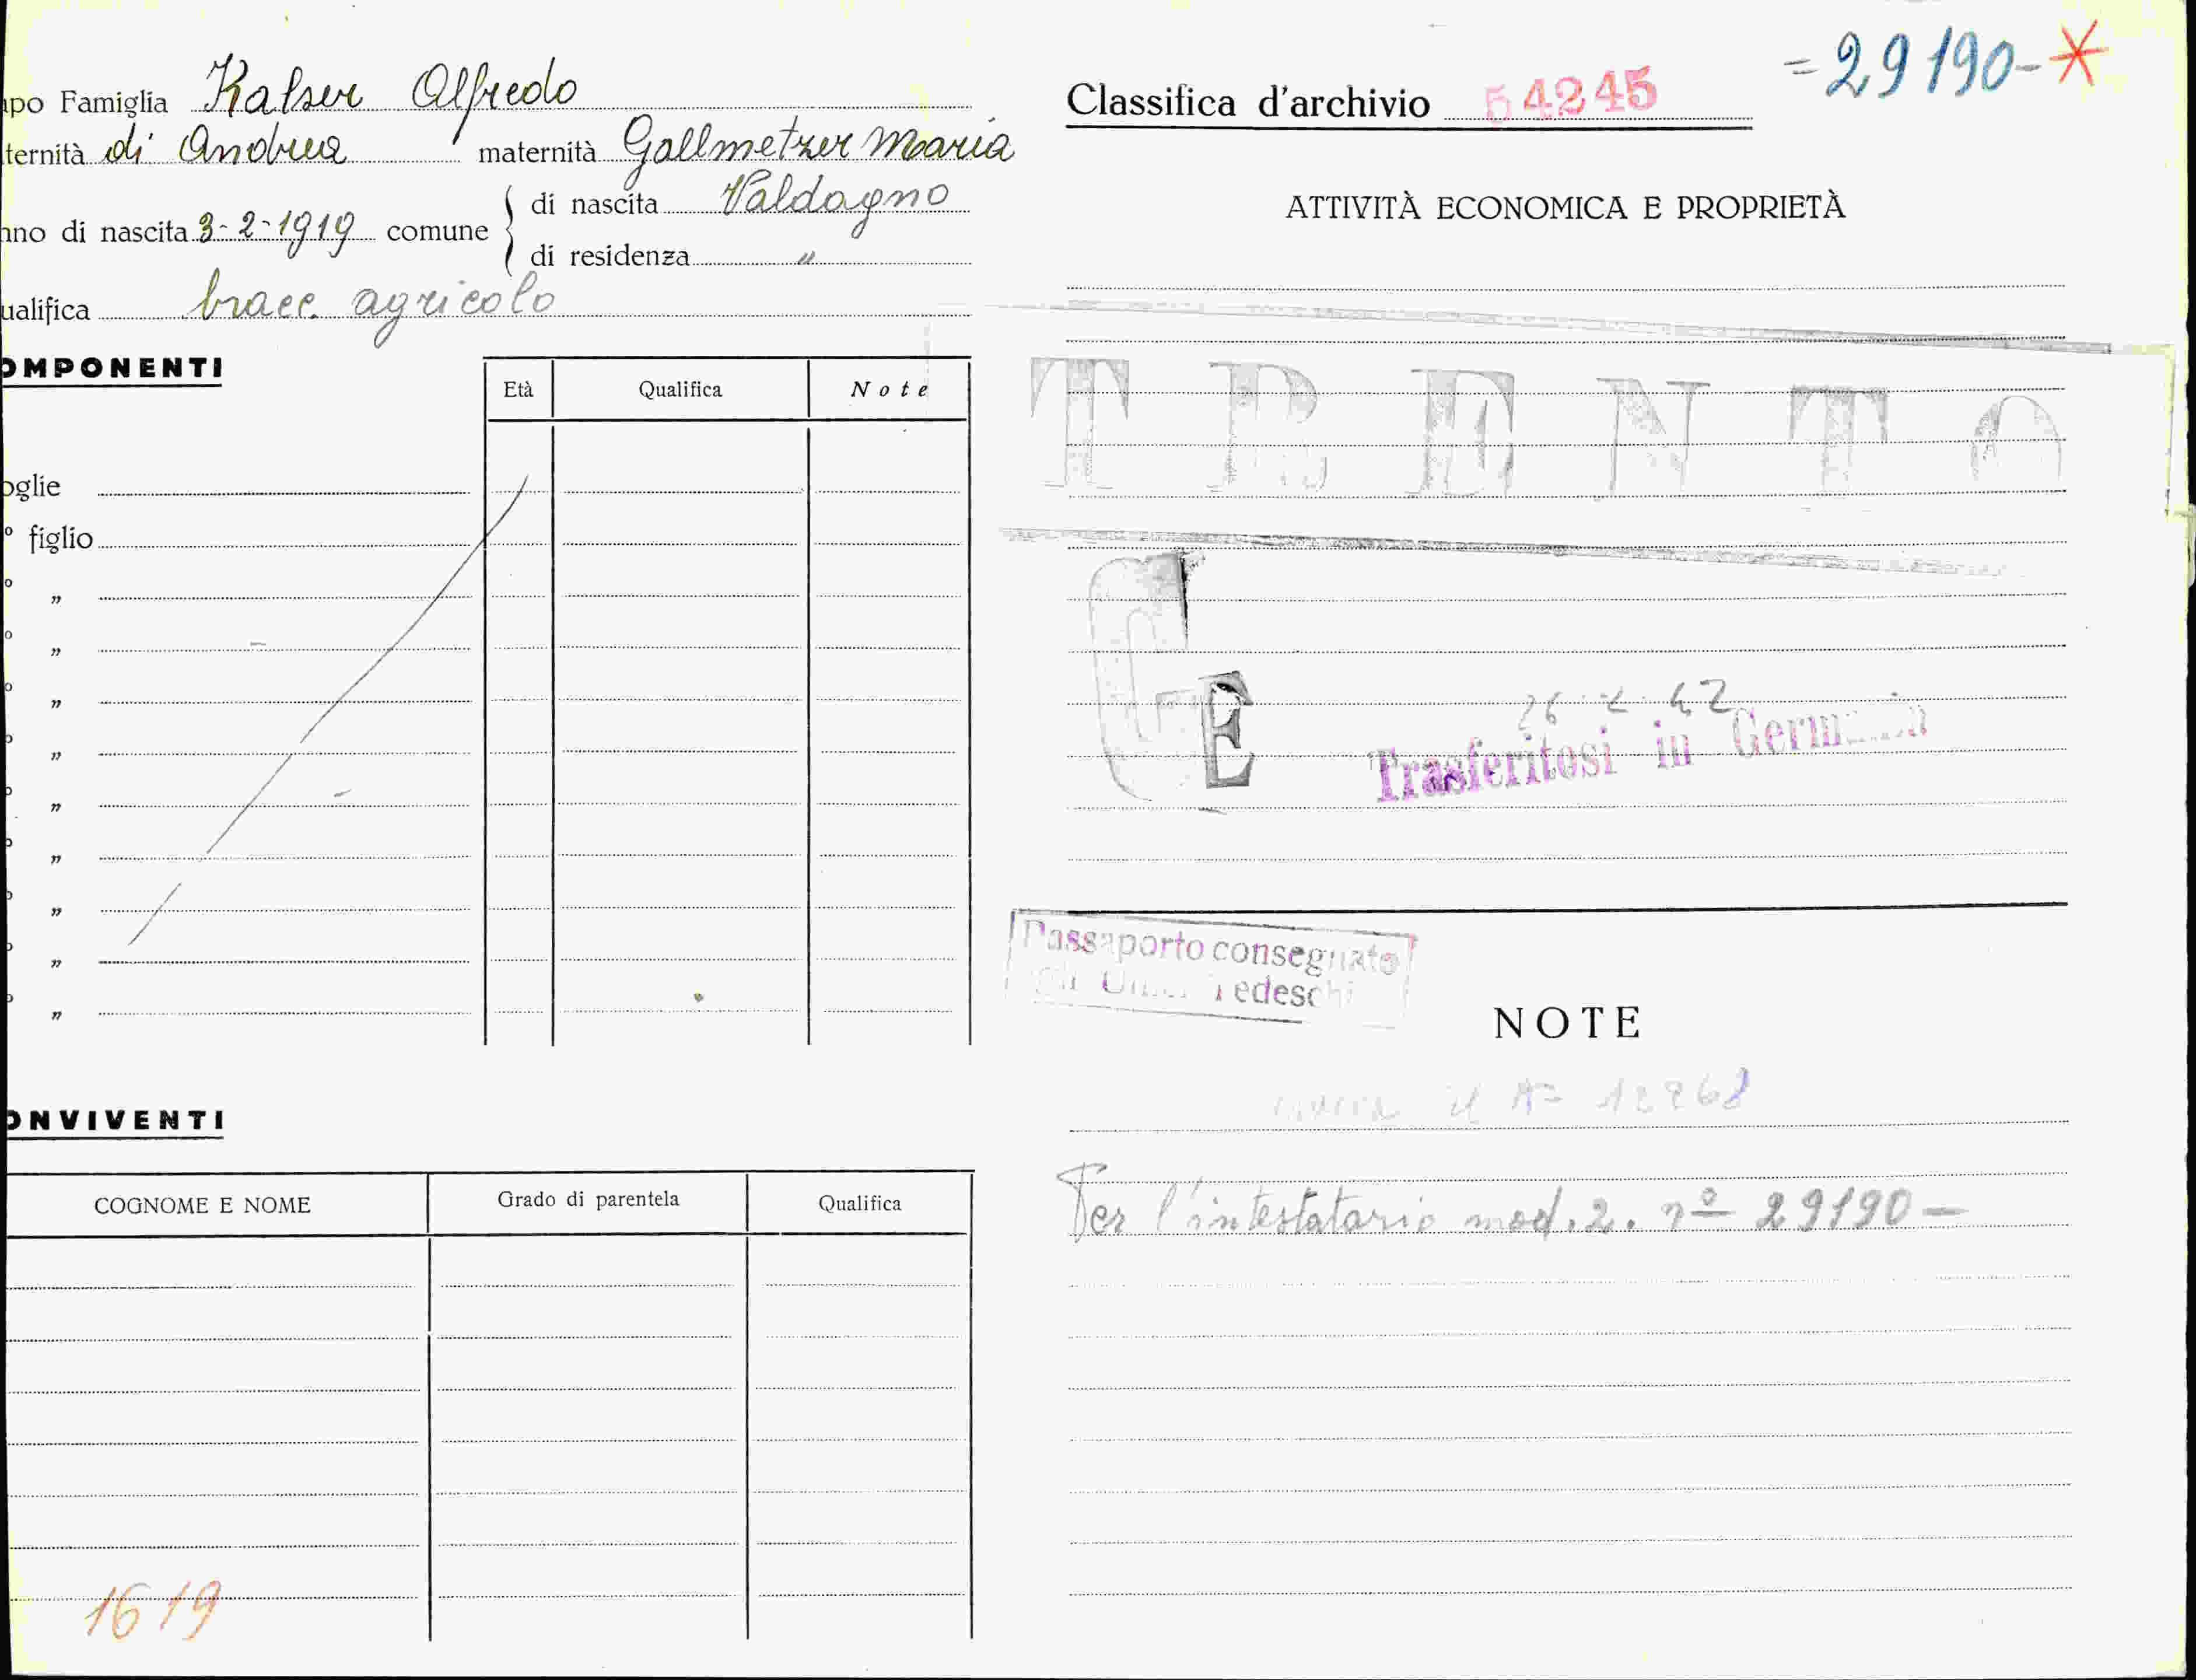 apo Famiglia Kalser Alfredo
ternità di Andrea maternità Gallmetzer Maria
nno di nascita 3-2-1919 comune di nascita Valdagno
di residenza "
ualifica bracc. agricolo
OMPONENTI
Età Qualifica Note
oglie
° figlio
° "
° "
° "
° "
° "
° "
° "
° "
° "
ONVIVENTI
COGNOME E NOME Grado di parentela Qualifica
1619
= 29190 - *
Classifica d'archivio 54245
ATTIVITÀ ECONOMICA E PROPRIETÀ
TRENTO
E
Trasferitosi in Germania
Passaporto consegnato
Tedeschi
NOTE
il N° 12268
Per l'intestatario mod. 2. nº 29190 —